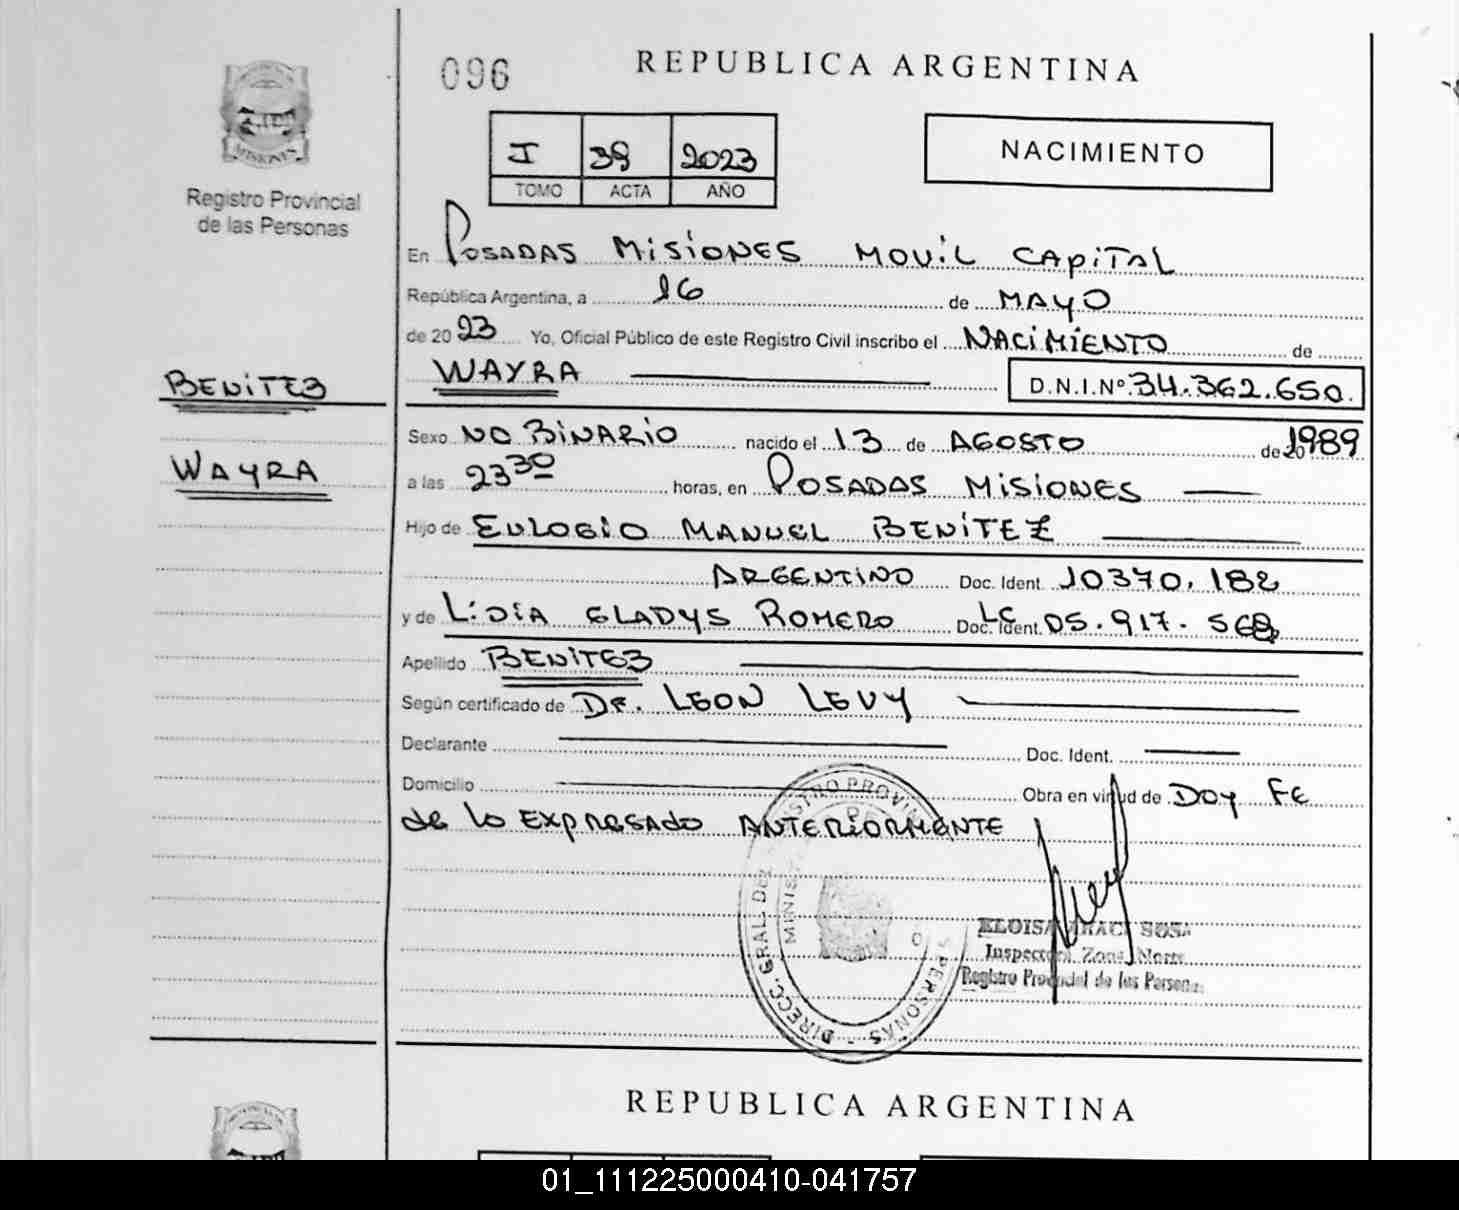 096
REPUBLICA ARGENTINA
I 39 2023
TOMO ACTA AÑO
NACIMIENTO
MISIONES
Registro Provincial
de las Personas
En POSADAS MISIONES MOVIL CAPITAL
República Argentina, a 16 de MAYO
de 2023 Yo, Oficial Público de este Registro Civil inscribo el NACIMIENTO de
WAYRA D.N.I.Nº 34.362.650
BENITEZ
WAYRA
Sexo NO BINARIO nacido el 13 de AGOSTO de 1989
a las 23 30 horas, en POSADAS MISIONES
Hijo de EULOGIO MANUEL BENITEZ
ARGENTINO Doc. Ident. 10370.182
y de LIDIA GLADYS ROMERO Doc. Ident. LC 05.917.568
Apellido BENITEZ
Según certificado de Dr. LEON LEVY
Declarante Doc. Ident.
Domicilio Obra en virtud de DOY FE
de lo EXPRESADO ANTERIORMENTE
DIRECC. GRAL. DEL REGISTRO PROVINCIAL PERSONAS
ELOISA ARACI SOSA
Inspectora Zona Norte
Registro Provincial de las Personas
REPUBLICA ARGENTINA
01_111225000410-041757